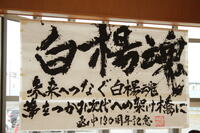 白楊魂
未来へつなぐ白楊魂
夢をつかめ次代への架け橋に
中130周年記念